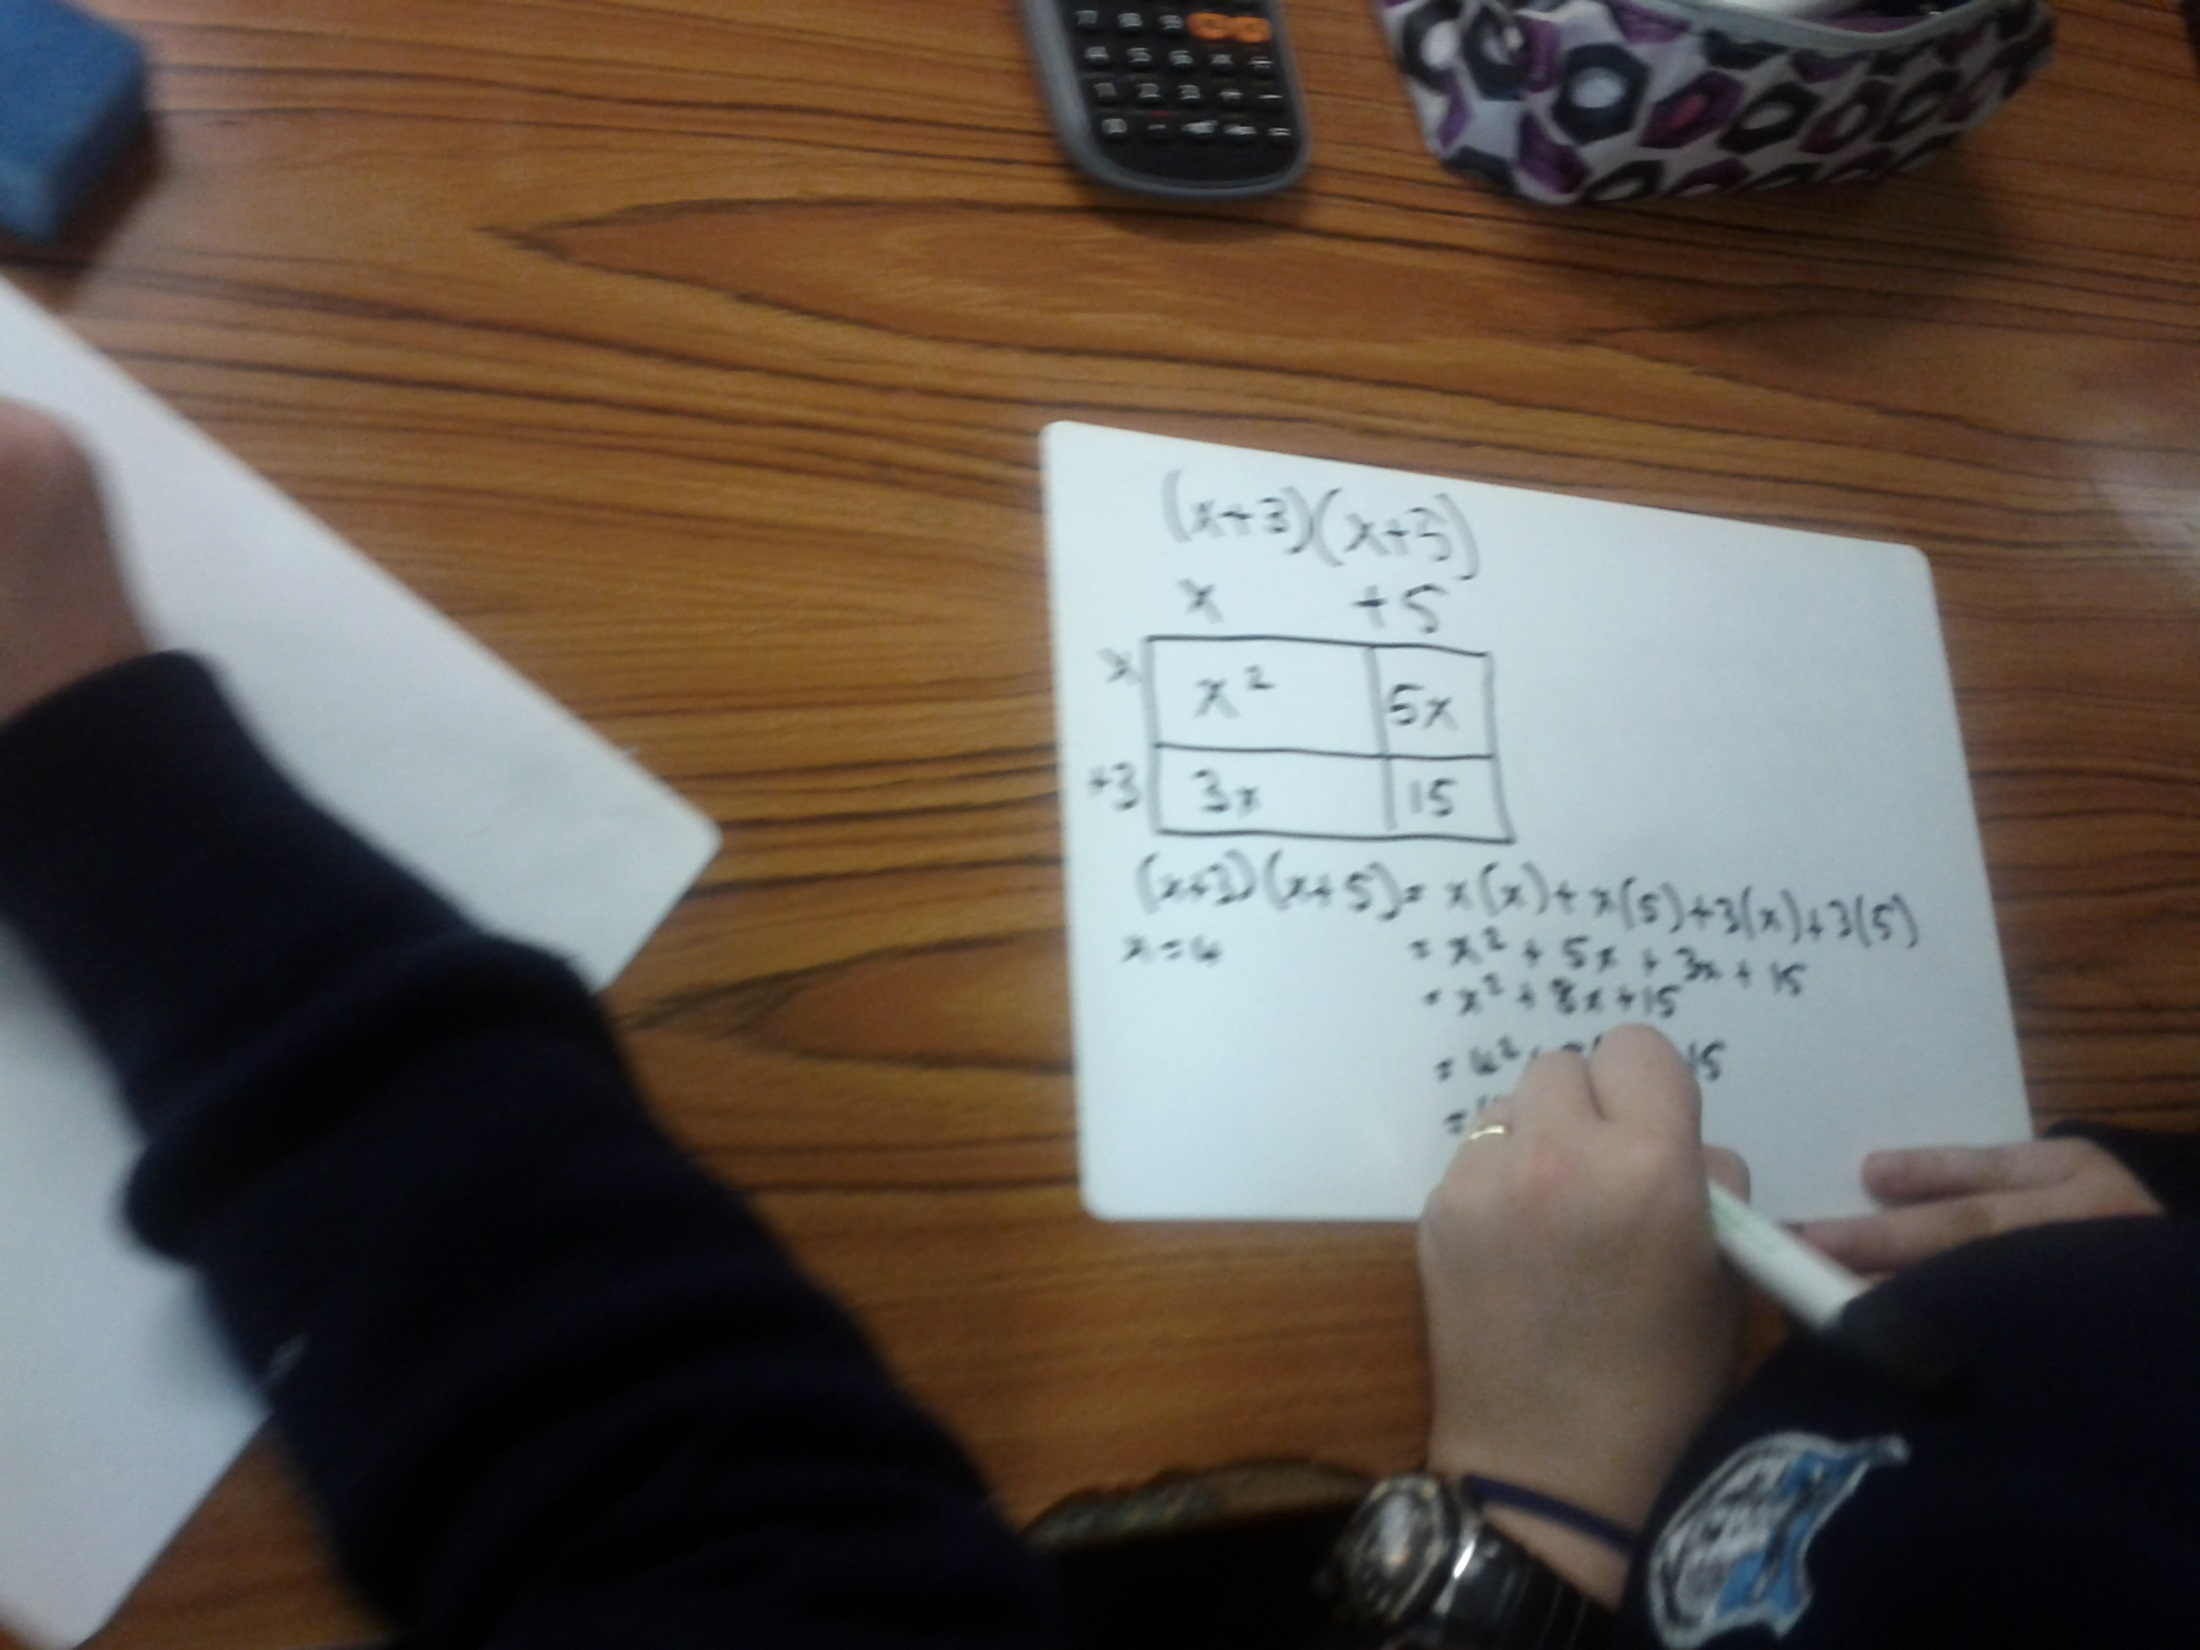 (x+3)(x+3)
x +5
x x² 5x
+3 3x 15
(x+3)(x+5)= x(x)+x(5)+3(x)+3(5)
x=4 = x² + 5x + 3x + 15
= x² + 8x+15
= 4² + 15
=